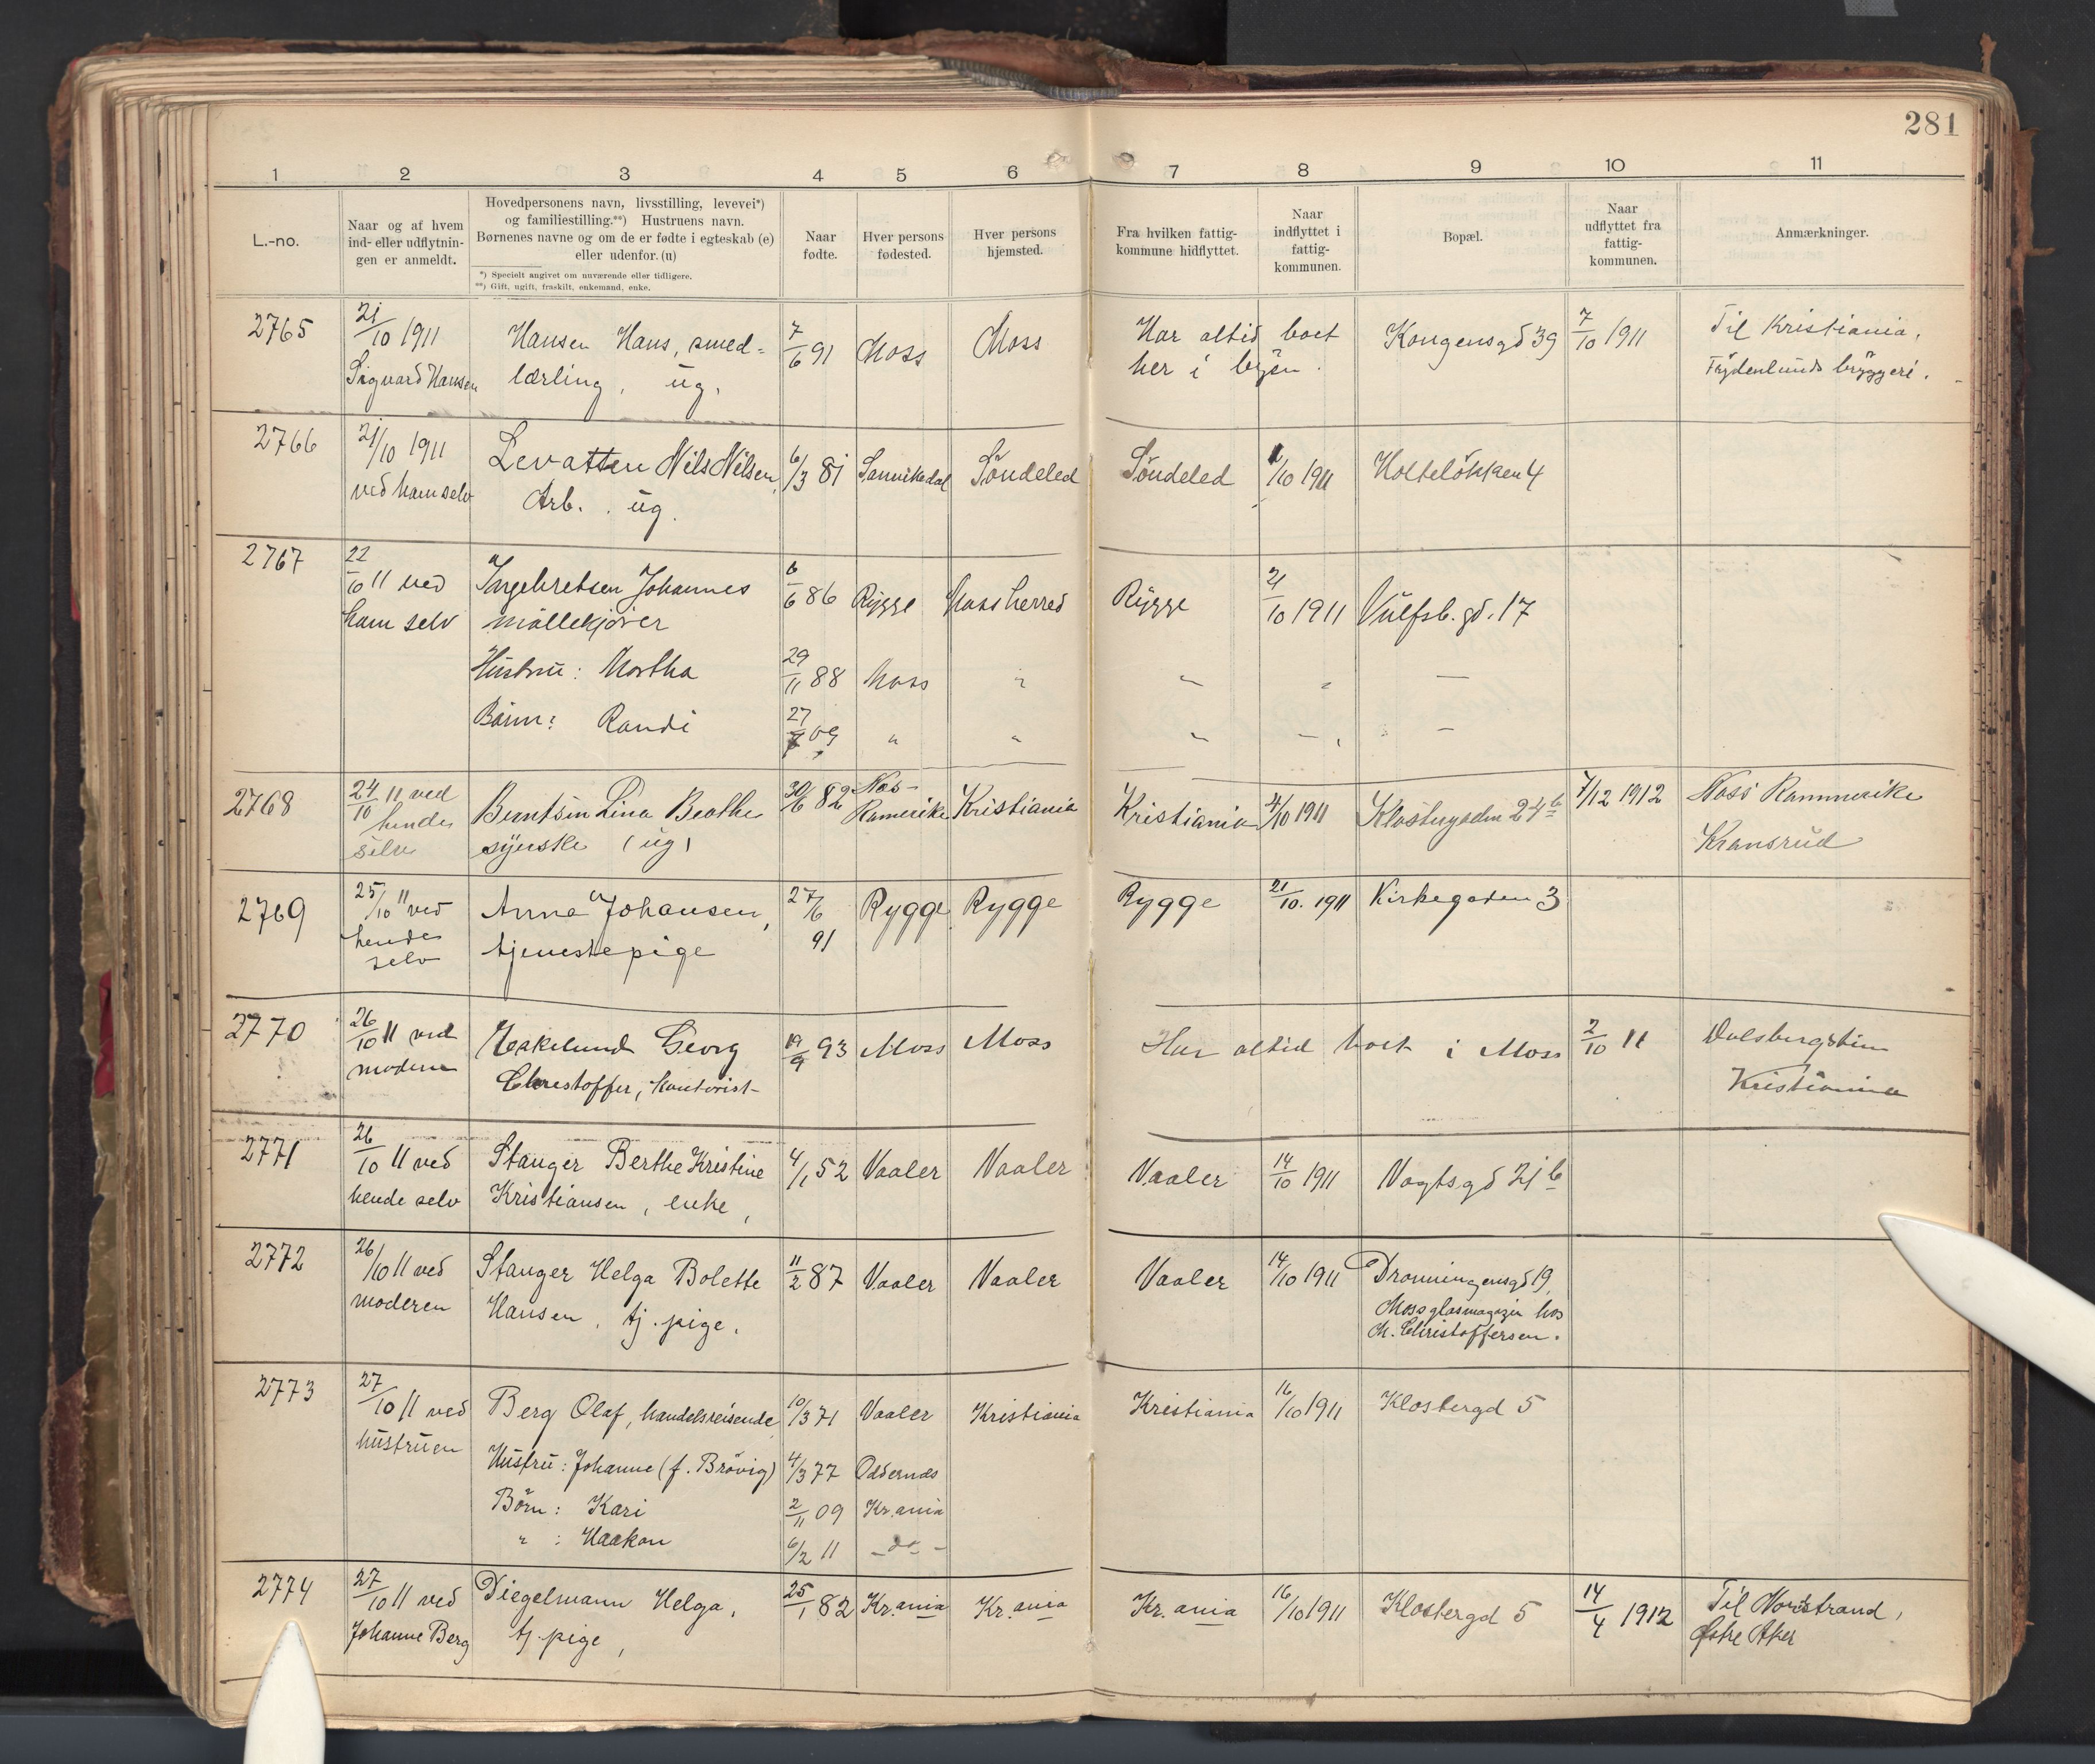 281
1 2 3 4 5 6 7 8 9 10 11
L.-no.
Naar og af hvem
ind- eller udflytnin-
gen er anmeldt.
Hovedpersonens navn, livsstilling, levevei*)
og familiestilling.**) Hustruens navn.
Børnenes navne og om de er fødte i egteskab (e)
eller udenfor. (u)
*) Specielt angivet om nuværende eller tidligere.
**) Gift, ugift, fraskilt, enkemand, enke.
Naar
fødte.
Hver persons
fødested.
Hver persons
hjemsted.
Fra hvilken fattig-
kommune hidflyttet.
Naar
indflyttet i
fattig-
kommunen.
Bopæl.
Naar
udflyttet fra
fattig-
kommunen.
Anmærkninger.
2765
21/10 1911
Sigvard Hansen
Hansen Hans, smed-
lærling, ug.
7/6 91
Moss
Moss
Har altid boet
her i byen.
Kongensgd 39
7/10 1911
Til Kristiania,
bryggeri.
2766
21/10 1911
ved ham selv
Levatten Nils Nilsen,
Arb. . ug.
6/3 81
Sannikedal
Söndeled
Söndeled
/10 1911
Holteløkken 4
2767
22/10 11 ved
ham selv
Ingebretsen Johannes
møllekjører
6/6 86
Rygge
Moss herred
Rygge
21/10 1911
Vulfsb. gd. 17
Hustru: Martha
29/11 88
Moss
" " " —
Barn: Randi
27/ 09
" " " — —
2768
24/10 11 ved
hende
selv
Berntsen Lina Beathe
syerske (ug)
30/6 82
Nes-
Romerike
Kristiania
Kristiania
4/10 1911
Klostergaden 24 b
7/12 1912
Næss Rommerike
Kransrud
2769
25/10 11 ved
hende
selv
Anna Johansen,
tjenestepige
27/6
91
Rygge
Rygge
Rygge
21/10. 1911
Kirkegaden 3
2770
26/10 11 ved
moderen
Eskelund Georg
Christoffer, kontorist
19/9 93
Moss
Moss
Har altid boet i Moss
2/10 11
Dalsbergstien
Kristiania
2771
26/10 11 ved
hende selv
Stanger Berthe Kristine
Kristiansen, enke,
4/1 52
Vaaler
Vaaler
Vaaler
14/10 1911
Vogtsgd 21 b
2772
26/10 11 ved
moderen
Stanger Helga Bolette
Hansen, tj. pige.
11/2 87
Vaaler
Vaaler
Vaaler
14/10 1911
Dronningensgd 19,
Moss glasmagazin hos
M. Christoffersen.
2773
27/10 11 ved
hustruen
Berg Olaf, handelsreisende
10/3 71
Vaaler
Kristiania
Kristiania
16/10 1911
Klostergd 5
Hustru: Johanne (f. Brövig)
4/3 77
Oddernes
Børn: Kari
2/11 09
Kr.ania
" : Haakon
6/2 11
- do -
2774
27/10 11 ved
Johanne Berg
Diegelmann Helga,
tj. pige,
25/1 82
Kr.ania
Kr.ania
Kr.ania
16/10 1911
Klostergd 5
14/4 1912
Til Nordstrand,
Østre Aker